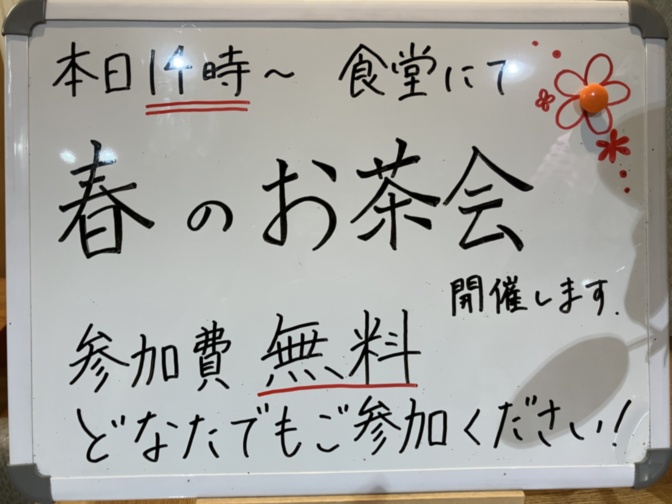 本日14時～ 食堂にて
春のお茶会
開催します.
参加費 無料
どなたでもご参加ください!